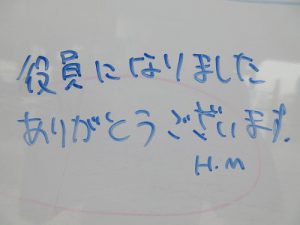 役員になりました
ありがとうございます.
H.M